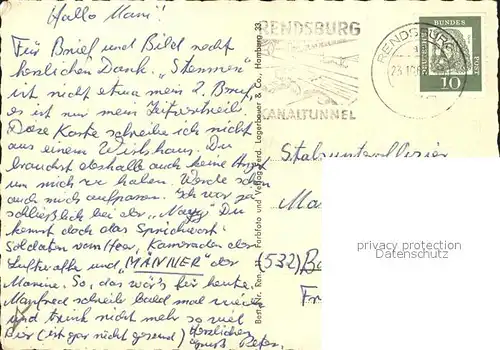 Hallo Mani!
Für Brief und Bild recht
herzlichen Dank. "Stemmen"
ist nicht etwa mein 2. Beruf,
es ist nur mein Zeitvertreib.
Diese Karte schreibe ich nicht
aus einem Wirtshaus. Du
brauchst deshalb auch keine Angst
um mich zu haben. Werde schon
auch mich aufpassen. Ich war ja
schließlich bei der "Navy". Du
kennst doch das Sprichwort:
Soldaten vom Heer, Kameraden der
Luftwaffe und "MÄNNER" der
Marine. So, das wär's für heute.
Manfred schreib bald mal wieder
und trink nicht mehr so viel
Bier (ist gar nicht gesund) Herzlichen
Gruß Peter
RENDSBURG
KANALTUNNEL
RENDSBURG
23.10.6
DEUTSCHE BUNDESPOST
10
Best.-Nr. Ren. Farbfoto und Verlag Gerd. Lagerbauer & Co., Hamburg 33
Stabsunteroffizier
Ma
(532) Ba
Fr
privacy protection
Datenschutz